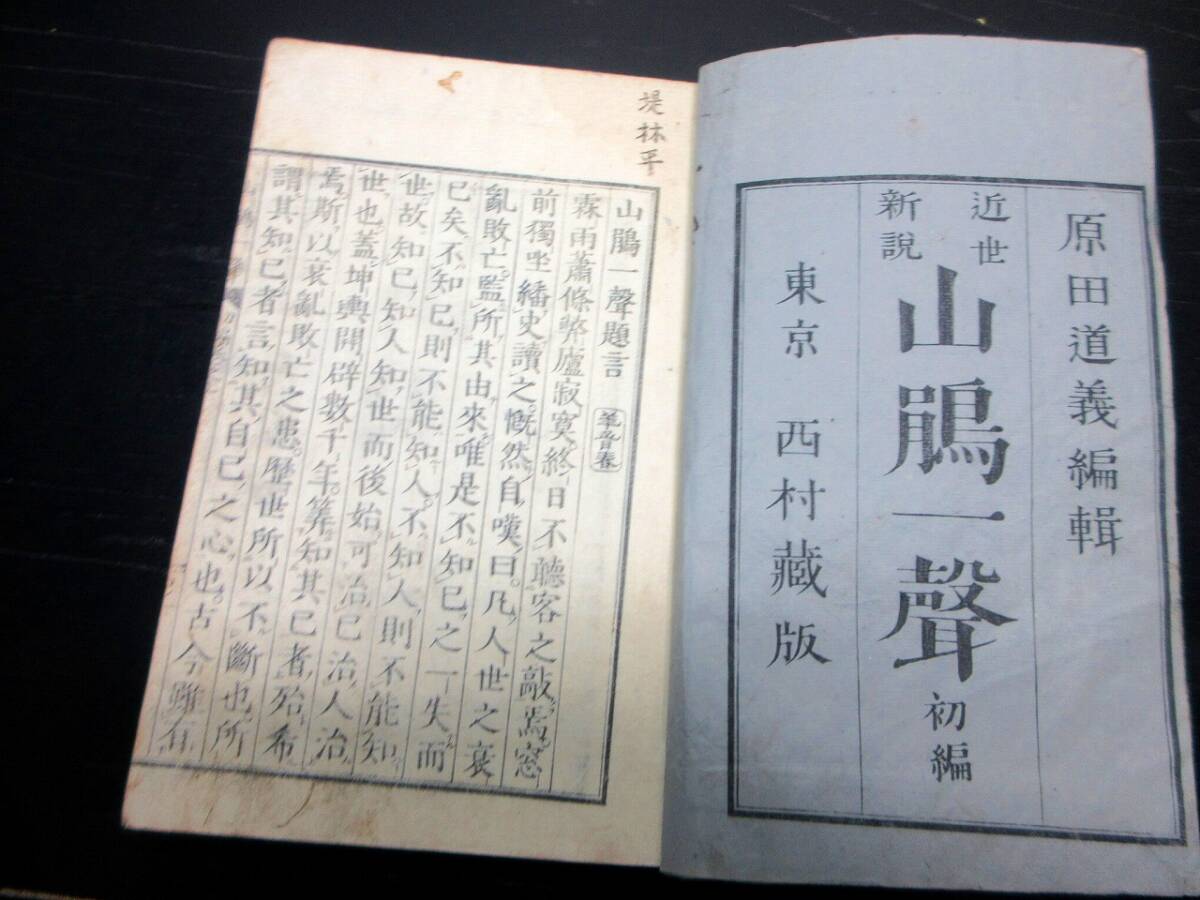 原田道義編輯
近世
新説
山鵑一聲
初編
東京 西村藏版
堤林平
山鵑一聲題言
霖雨蕭條弊廬寂寞終日不聽客之敲焉窓
前獨坐繙史讀之慨然自嘆曰凡人世之衰
亂敗亡監所其由來唯是不知已之一失而
已矣不知已則不能知人不知人則不能知
世故知已知人知世而後始可治已治人治
世也蓋坤輿開闢數千年筭知其已者殆希
焉斯以衰亂敗亡之患歷世所以不斷也所
謂其知已者言知其自已之心也古今雖有